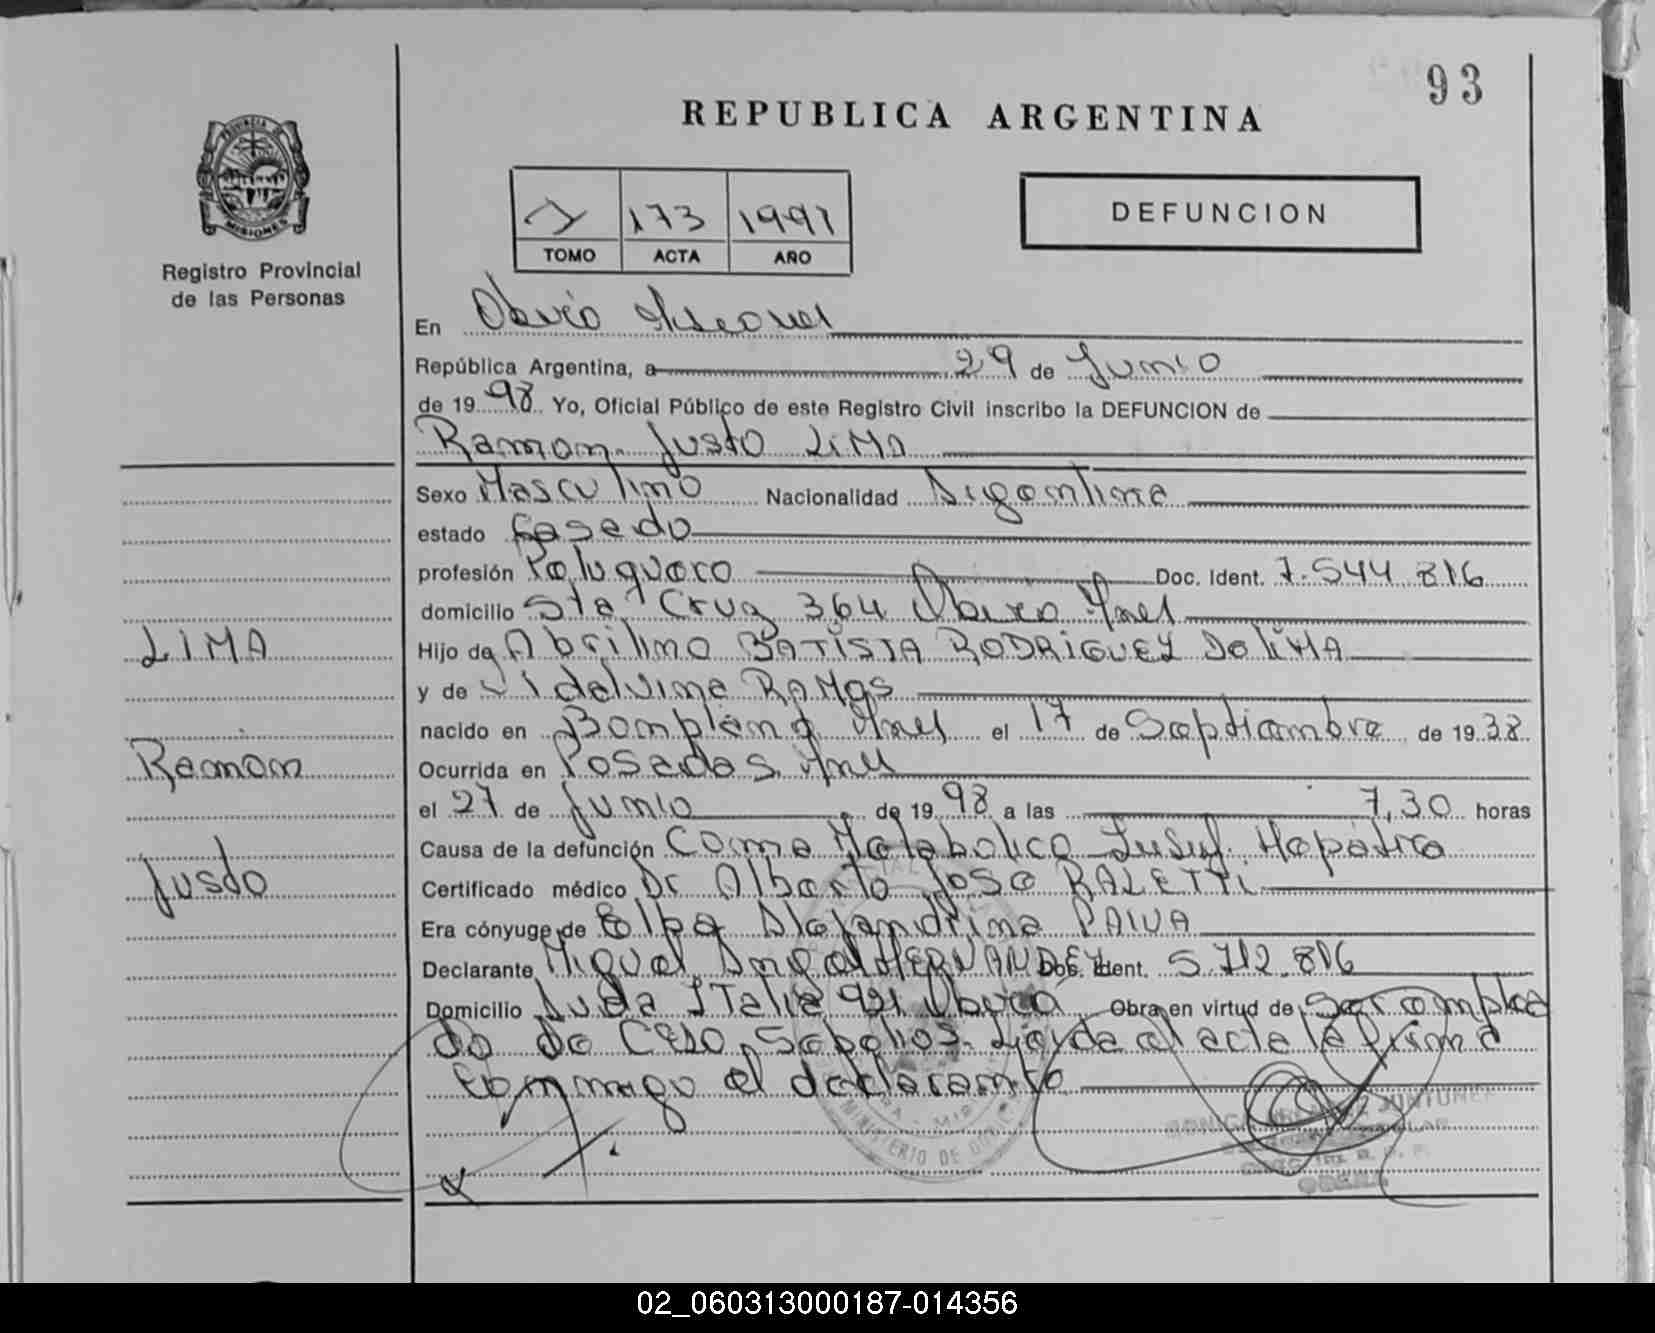 93
REPUBLICA ARGENTINA
PROVINCIA DE
MISIONES
Registro Provincial
de las Personas
I 173 1991
TOMO ACTA AÑO
DEFUNCION
En Oberá Misiones
República Argentina, a 29 de Junio
de 19 98. Yo, Oficial Público de este Registro Civil inscribo la DEFUNCION de
Ramon Justo LiMA
Sexo Masculino Nacionalidad Argentina
estado Casado
profesión Peluquero Doc. Ident. 7.544.816
domicilio Sta Cruz 364 Oberá Mnes
LIMA
Hijo de Abrilino BATiSTA RODRiGUEZ De LiMA
y de Videlvina RAMOS
nacido en Bompland Mnes el 17 de Septiembre de 19 38
Ramon
Ocurrida en Posadas Mnes
el 27 de Junio de 19 98 a las 7,30 horas
Causa de la defunción Coma Metabolico Insuf. Hepática
Justo
Certificado médico Dr Alberto Jose RALETTI
Era cónyuge de Elba Alejandrina PAIVA
Declarante Miguel Angel HERNANDEZ Doc. Ident. 5.712.816
Domicilio Avda ITalia 921 Oberá Obra en virtud de Ser emplea
do de Caso Sepelios. Leída el acta la firma
conmigo el declarante
MINISTERIO DE GOBIERNO
02_060313000187-014356